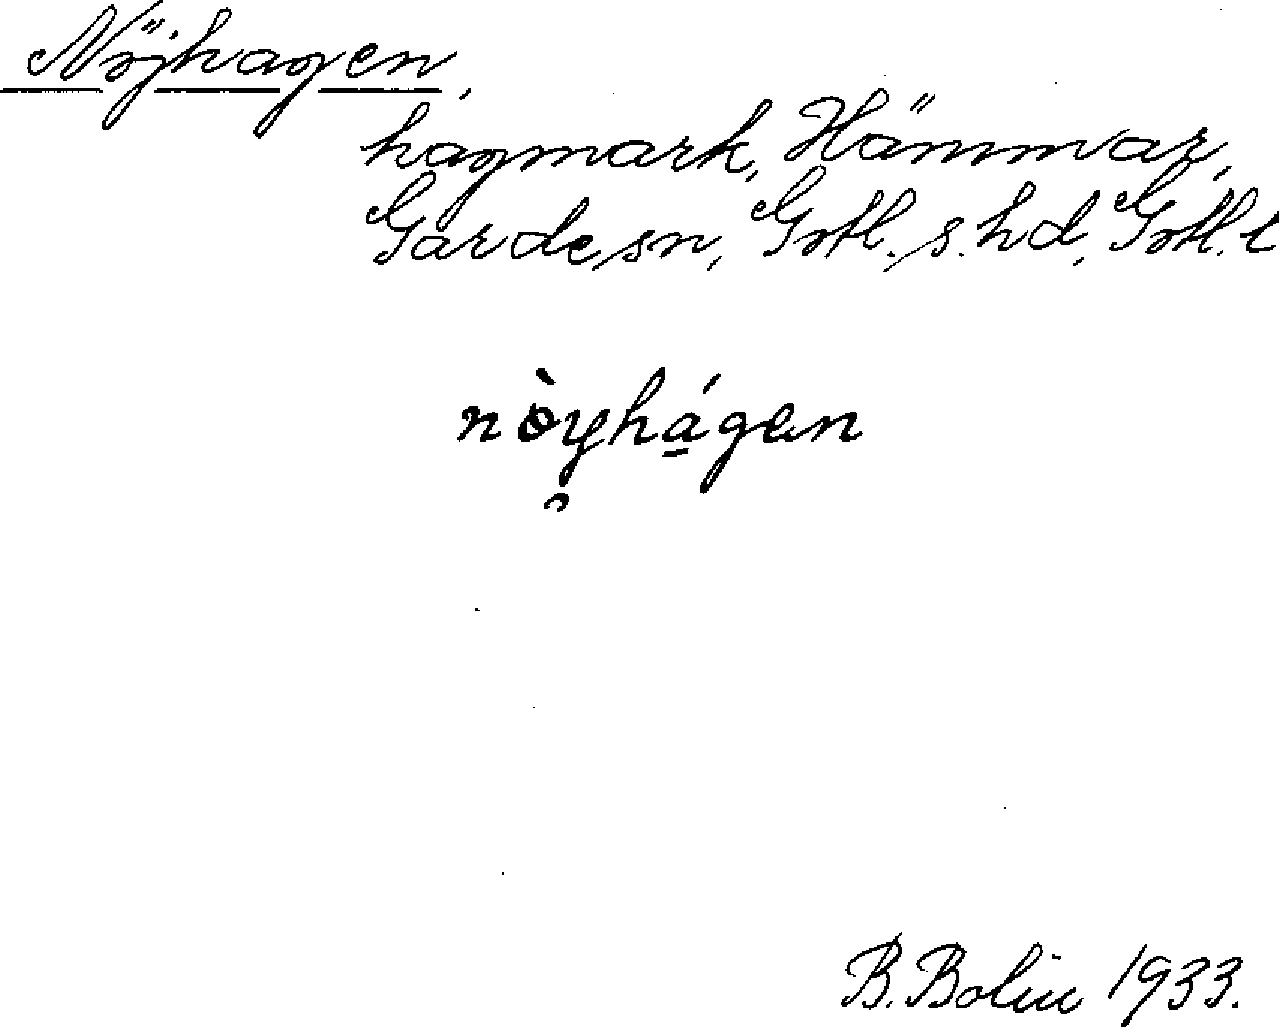 Nöjhagen,
hagmark, Hämmar,
Garde sn, Gotl. s. hd, Gotl. l
nòyhágen
B. Bolin 1933.